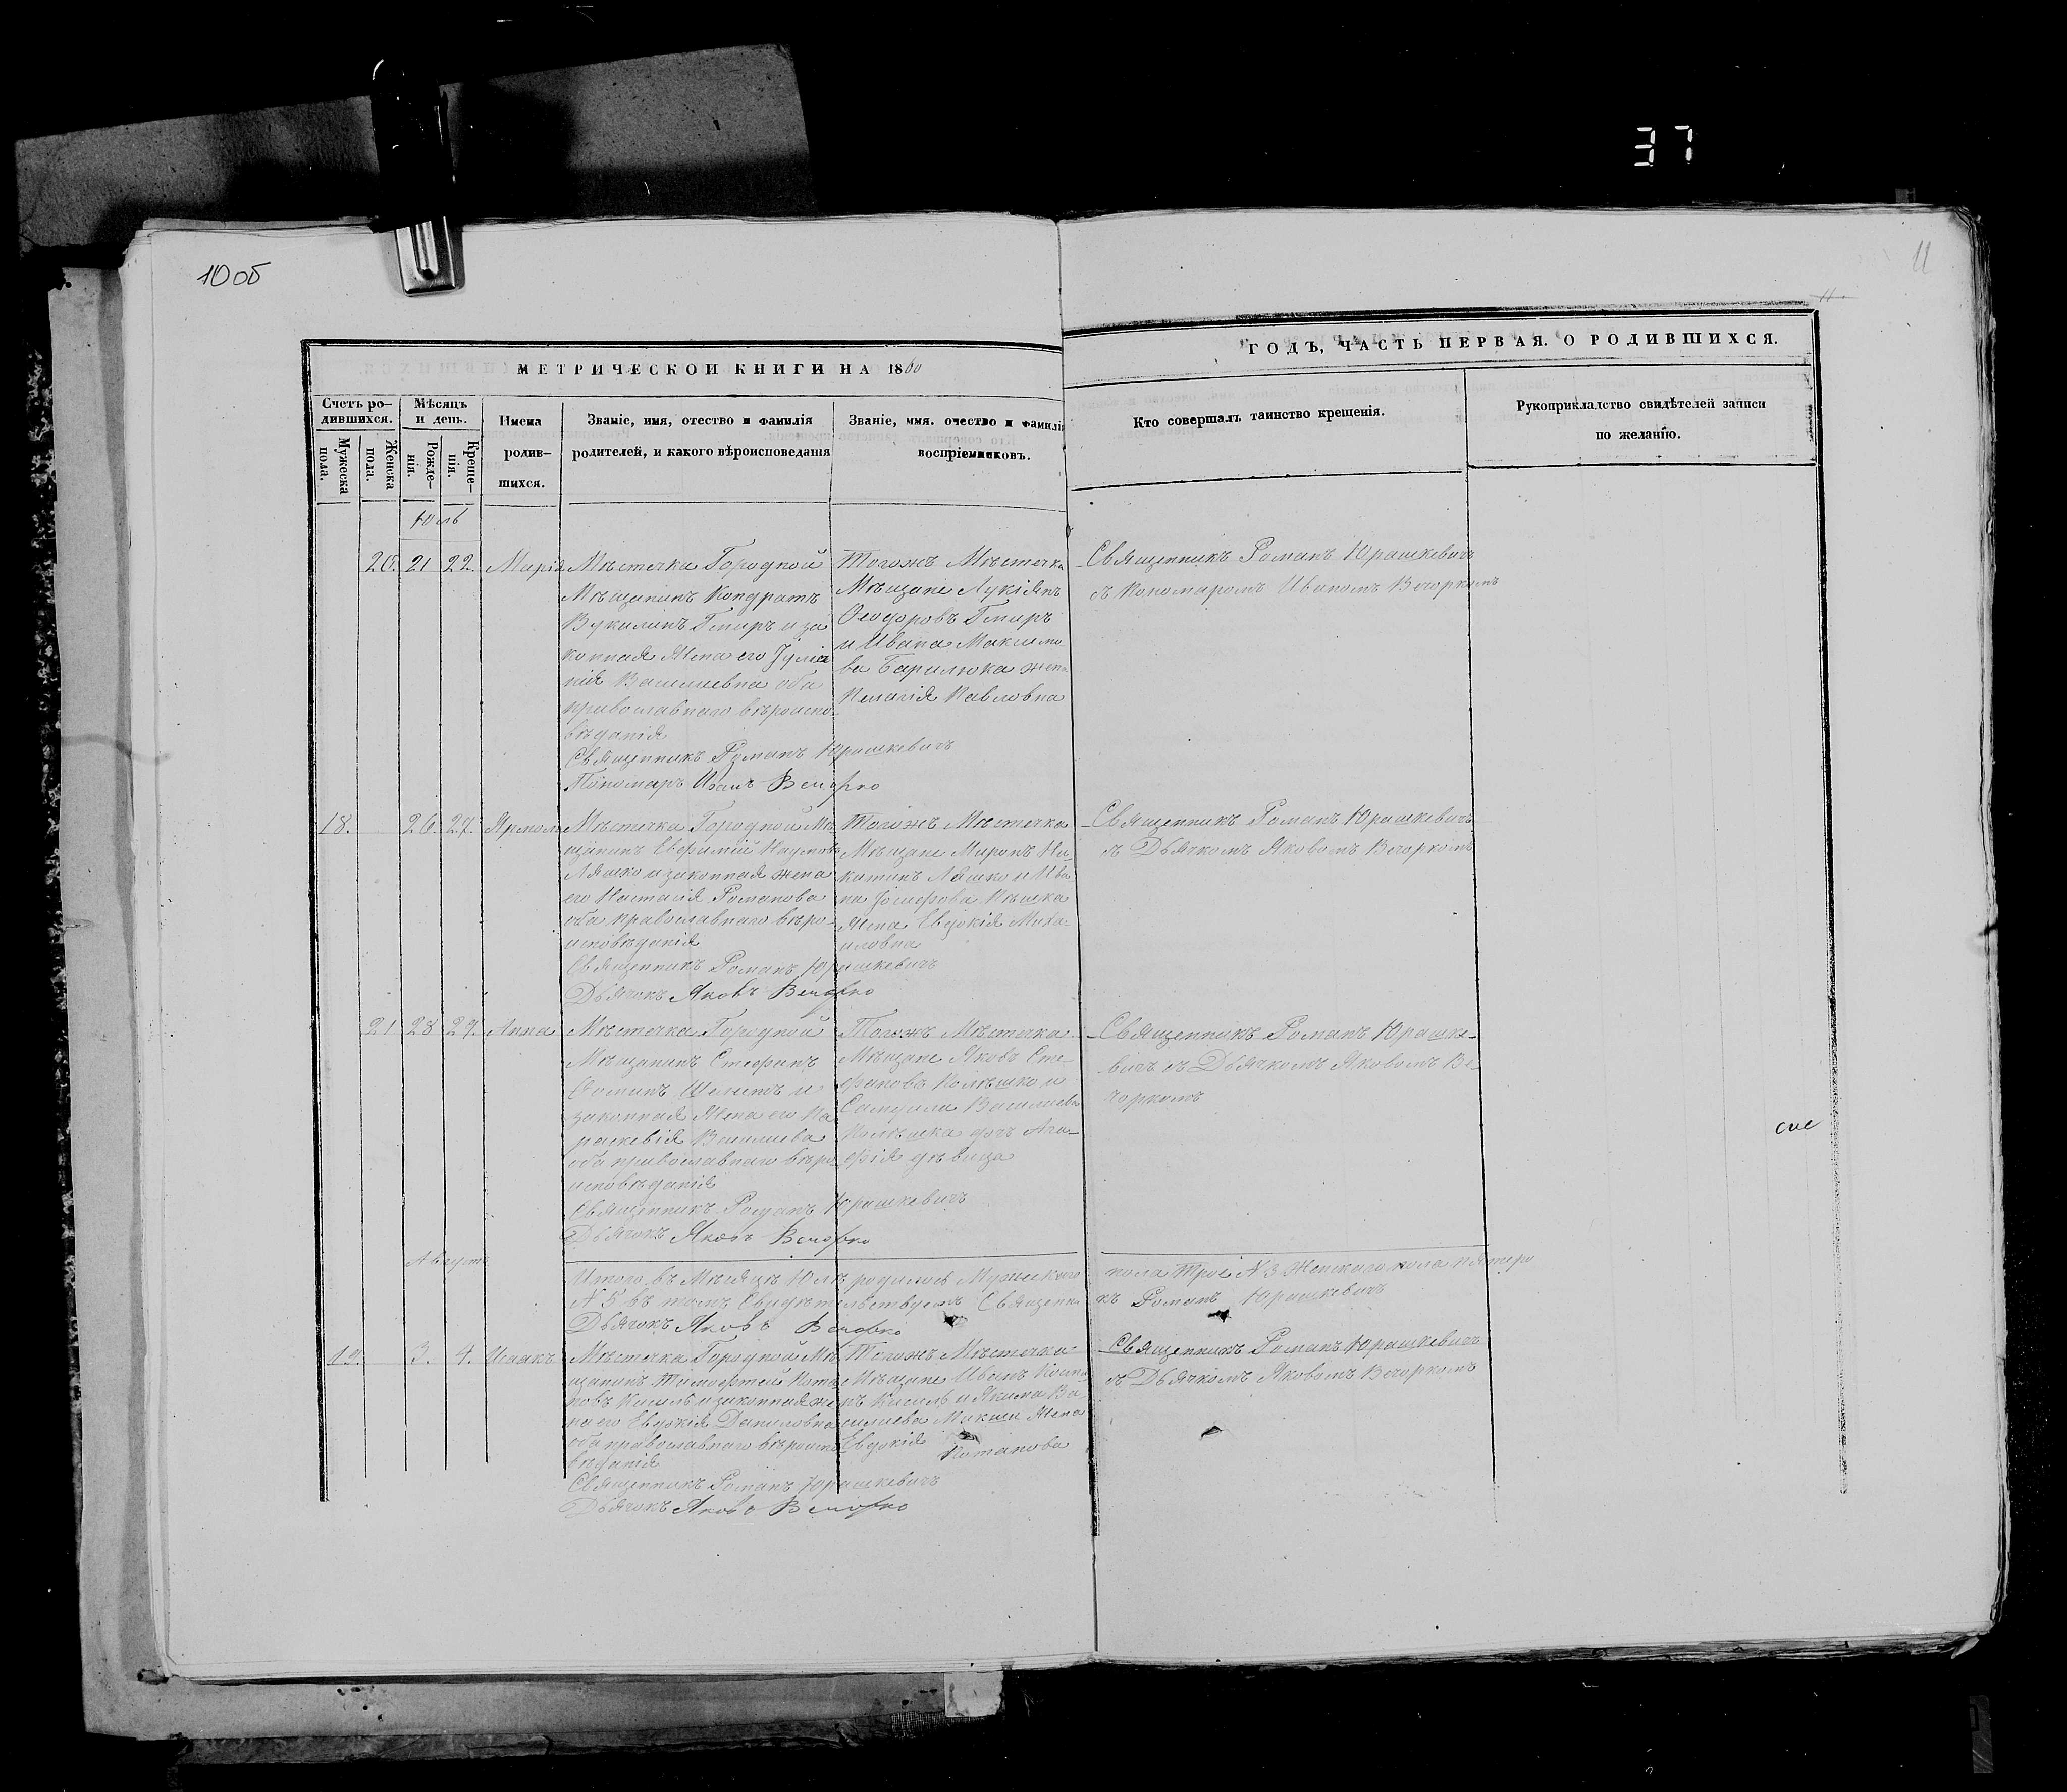 37
10 об
11
11.
МЕТРИЧЕСКОЙ КНИГИ НА 1860
ГОДЪ, ЧАСТЬ ПЕРВАЯ. О РОДИВШИХСЯ.
Счетъ ро-
дившихся.
Мужеска
пола.
Женска
пола.
Мѣсяцъ
и день.
Рожде-
нія.
Креще-
нія.
Имена
родив-
шихся.
Званіе, имя, отество и фамилія
родителей, и какого вѣроисповеданія
Званіе, имя. очество и фамилія
воспріемниковъ.
Кто совершалъ таинство крещенія.
Рукоприкладство свидѣтелей записи
по желанію.
Юль
20. 21 22. Марія
Мѣстечка Городной
Мѣщанинъ Кондратъ
Вукилинъ Гмиръ и за
конная Жена его Іулiа
нія Василиевна оба
православнаго вѣроиспо-
вѣданія
Священникъ Романъ Юрашкевичъ
Пономарь Иванъ Вечорко
Тогожъ Мѣстечка
Мѣщане Лукіянъ
Ѳеодоровъ Гмиръ
и Ивана Максимо
ва Барилюка жена
Пелагія Павловна
Священникъ Романъ Юрашкевичъ
съ Пономаромъ Иваномъ Вечоркомъ
18. 26. 27. Ярмола
Мѣстечка Городной Мѣ
щанинъ Евфимій Наумовъ
Ляшко и законная жена
его Настасія Романова
оба православнаго вѣро-
исповѣданія
Священникъ Романъ Юрашкевичъ
Дьячокъ Яковъ Вечорко
Тогожъ Мѣстечка
Мѣщане Миронъ Ни-
китинъ Ляшко и Ива
на Іосифова
Жена Евдокія Миха-
иловна
Священникъ Романъ Юрашкевичъ
съ Дьячкомъ Яковомъ Вечоркомъ
21 28 29. Анна
Мѣстечка Городной
Мѣщанинъ Стефанъ
Ѳоминъ Шелестъ и
законная Жена его Па
раскевія Василиева
оба православнаго вѣро
исповѣданія
Священникъ Романъ Юрашкевичъ
Дьячокъ Яковъ Вечорко
Тогожъ Мѣстечка
Мѣщане Яковъ Сте-
фановъ Колѣшко и
Самуила Василиева
Колѣшка дочъ Ага-
фія дѣвица
Священникъ Романъ Юрашке-
вичъ съ Дьячкомъ Яковомъ Ве-
чоркомъ
Августъ
Итого въ Мѣсяцѣ Юлѣ родилось Мужескаго пола трое N 3 Женскаго пола пятеро
N 5 въ томъ Свидѣтельствуемъ Священникъ Романъ Юрашкевичъ
Дьячокъ Яковъ Вечорко
19. 3. 4. Исаакъ
Мѣстечка Городной Мѣ
щанинъ Тимофтей Пота
повъ Кисиль и законная же
на его Евдокія Даниловна
оба православнаго вѣроиспо
вѣданія
Священникъ Романъ Юрашкевичъ
Дьячокъ Яковъ Вечорко
Тогожъ Мѣстечка
Мѣщане Иванъ
Кисиль и Якима Ва
силиева Микши Жена
Евдокія Потапова
Священникъ Романъ Юрашкевичъ
съ Дьячкомъ Яковомъ Вечоркомъ